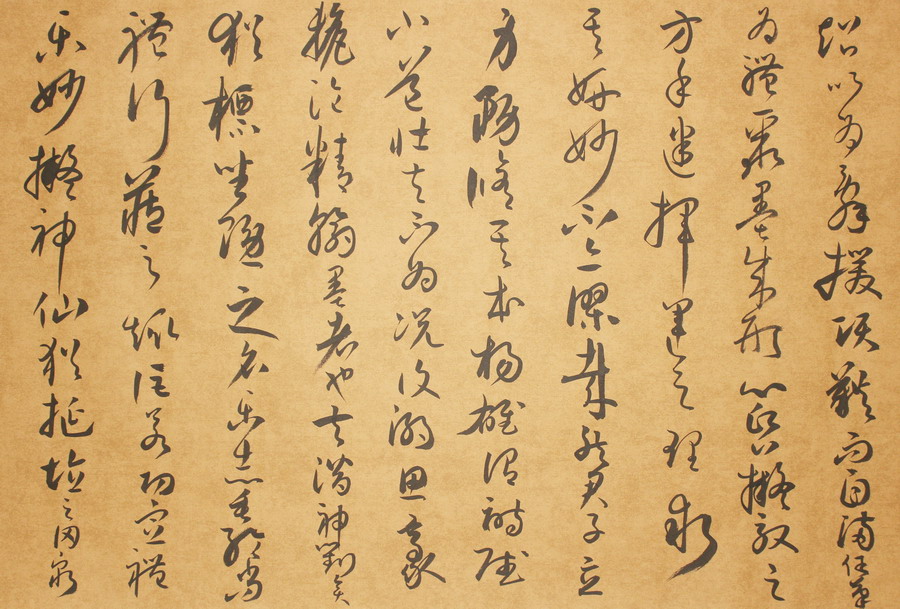 超以為辭援項籍而自滿任筆
為體聚墨成形心昏擬效之
方手迷揮運之理求
其妍妙不亦謬哉然君子立
身務脩其本楊雄謂詩賦
小道壯夫不為況復溺思豪
氂淪精翰墨者也夫潛神對奕
猶標坐隱之名樂志垂綸尚
體行藏之趣詎若功宣禮
樂妙擬神仙猶挻埴之罔窮